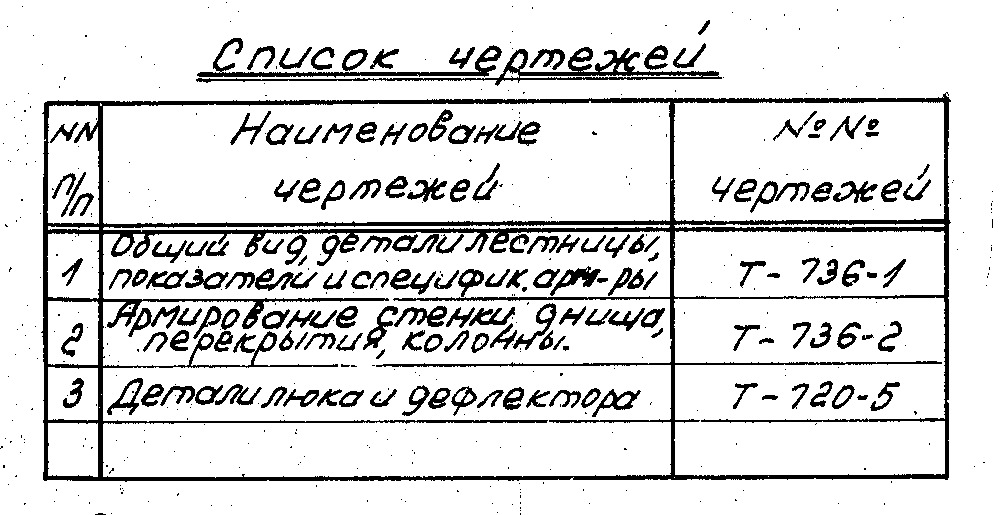 Список чертежей
NN Наименование №№
п/п чертежей чертежей
Общий вид, детали лестницы,
1 показатели и специфик. арм-ры Т-736-1
Армирование стенки, днища,
2 перекрытия, колонны. Т-736-2
3 Детали люка и дефлектора Т-720-5